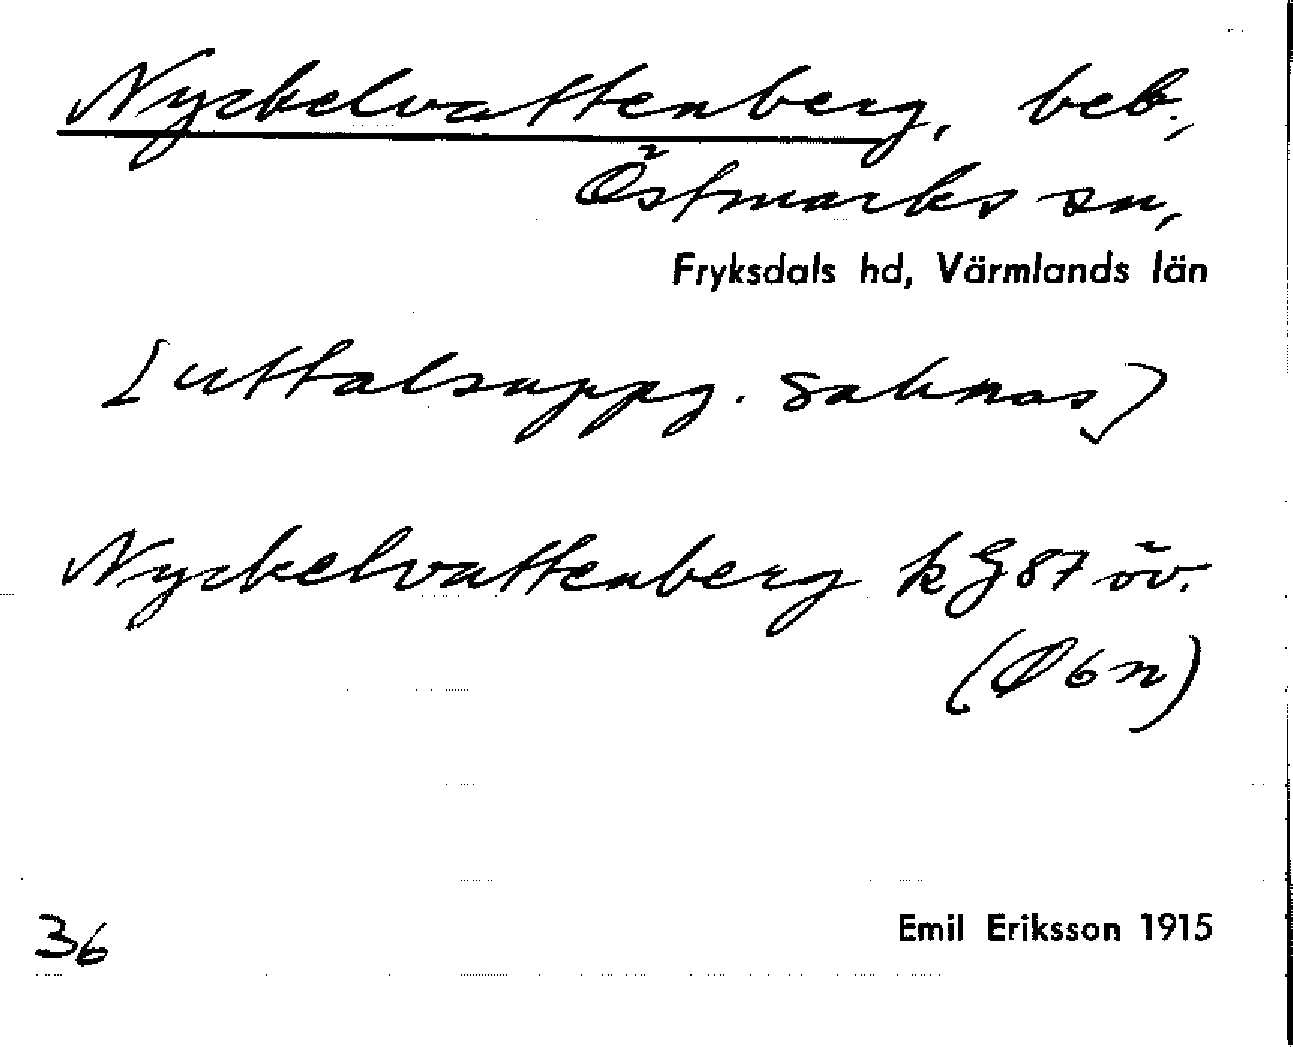 Nyckelvattenberg, beb.,
Östmarks sn,
Fryksdals hd, Värmlands län
[uttalsuppg. saknas]
Nyckelvattenberg kG87 öv.
(Ø6n)
36
Emil Eriksson 1915